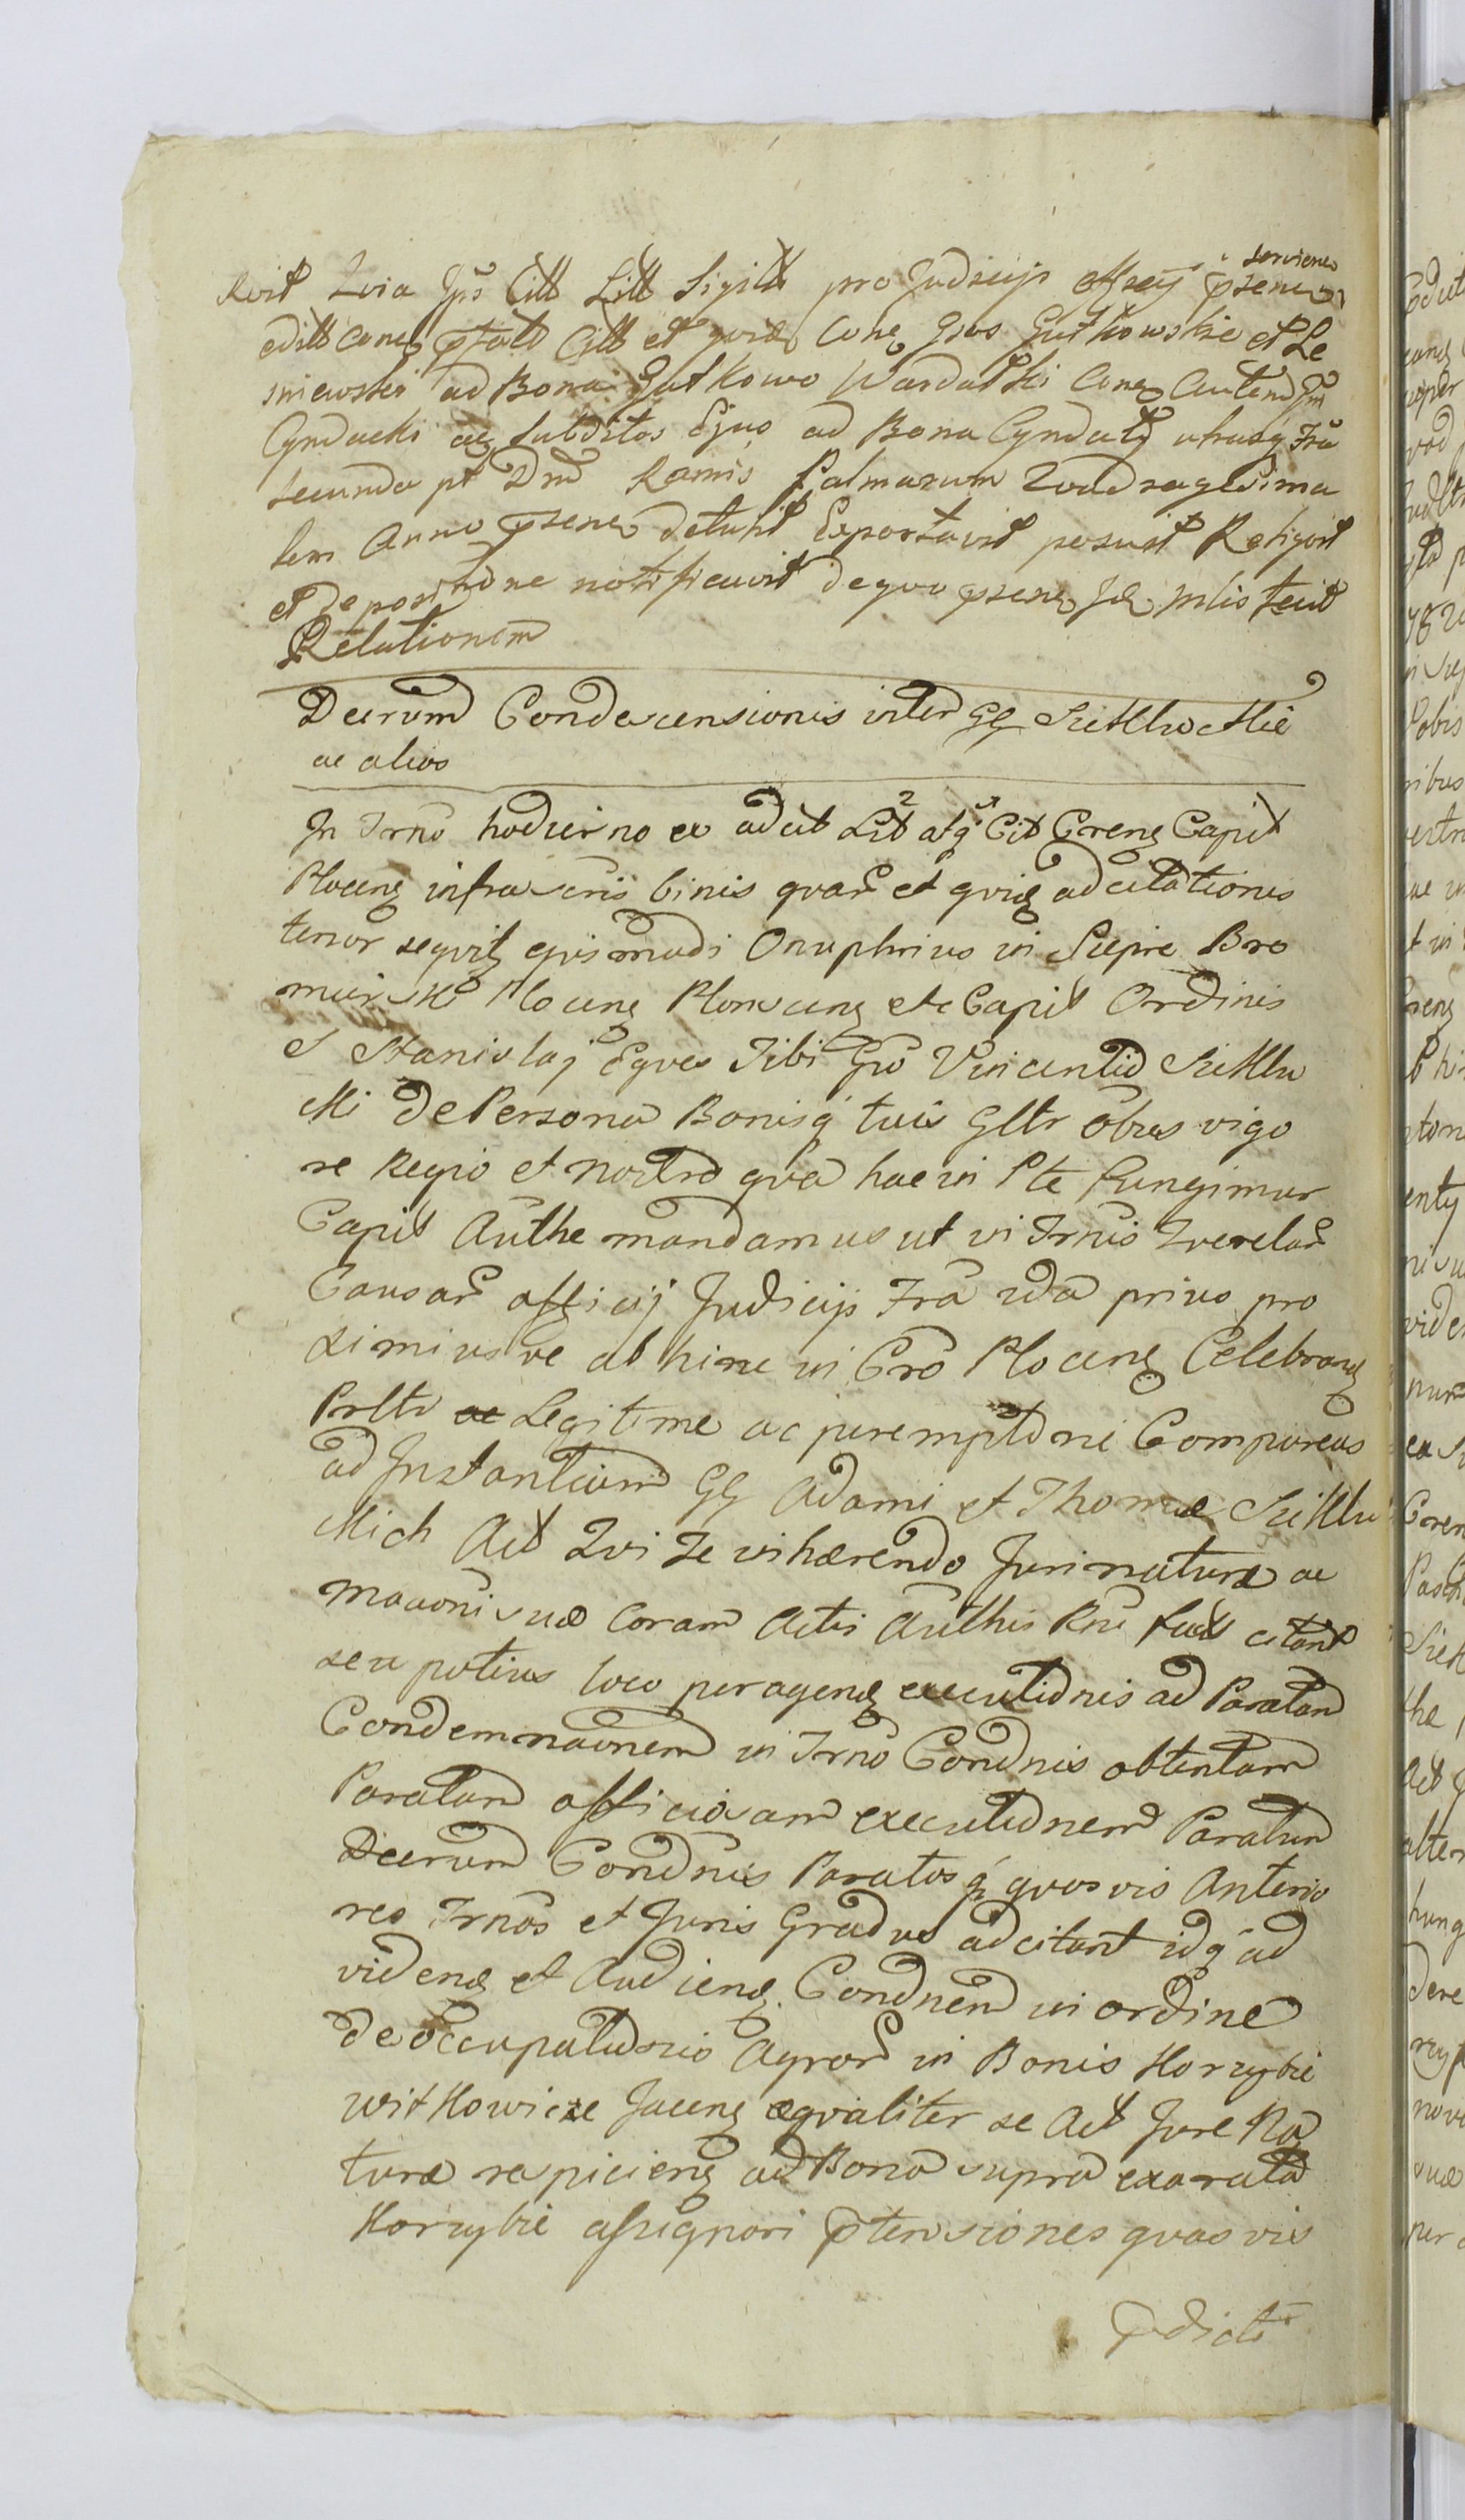 Rvit Qvia Jps Citt Litt Sigillt pro Judicijs officij psene serviens
editt cone ptatt Citt et qvid cone Gsos Gutkowskie et Le
sniewskei ad Bona Gutkowo Wardatki cone autem Gm
Cyndacki ac subditos Ejus ad Bona Cyndaty utrasq fra
secunda pt Dnd Ramis Palmarum Qvadragesima
lem Anno psene detulit Exportavit posuit Reliqvit
et de positione notificavit deqvo psene Jd mlis fecit
Relationem
Decrum Condescensionis inter GG Siekluckie
ac alios
In Trno hodierno ex adcit Lit atq Cit Crens Capit
Plocens infrascris binis qvar et qvid adcitationis
tenor seqvit ejusmodi Onuphrius in Siepre Bro
mierski Plocens Plonscens etc Capit Ordinis
S Stanislaj Eqves Tibi Gso Vincentio Sieklu
cki de Persona Bonisq tuis Gltr obus vigo
re Regio et nostro qva hac in Pte fungimur
Capit Authe mandamus ut in Trnis Qverelar
Causar officij Judicijs fra 2da prius pro
ximiusve ab hinc in Cro Plocens Celebrans
Prltr Legitime ac peremptorie Compareas
ad Instantiam GG Adami et Thomæ Sieklu
ckich Act Qvi Te inhærendo Juri naturæ ac
maaoni suæ coram Actis Authis Rni fact citant
seu potius loco peragens executionis ad Paratam
Condemnaonem in Trno Condnis obtentam
Paratam officiosam executionem Paratum
Decrum Condnis Paratosq qvosvis Anterio
res Trnos et Juris Gradus adcitant idq ad
videns et Audiens Condnem in ordine
deoccupationis Agror in Bonis Korzybie
Witkowicze Jacens æqvaliter se Act Jure Na
turæ respiciens ad Bona supra exarata
Korzybie assignari ptensiones qvasvis
pdicti